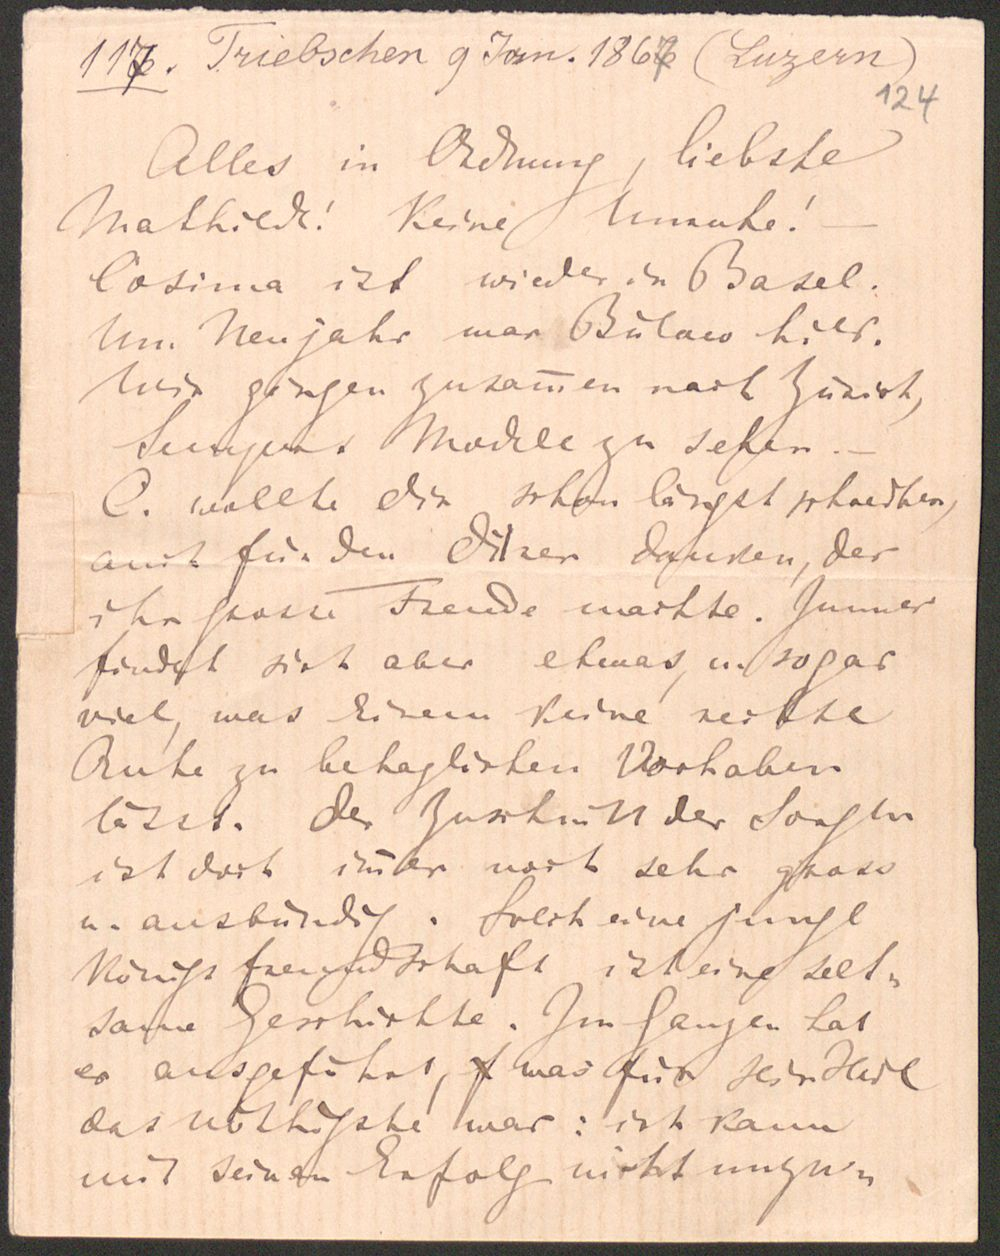 117. Triebschen 9 Jan. 1867 (Luzern)
124
Alles in Ordnung, liebste
Mathilde! Keine Unruhe! —
Cosima ist wieder in Basel.
Um Neujahr war Bülow hier.
Wir gingen zusam̄en nach Zürich,
Sempers Modell zu sehen. —
C. wollte dir schon längst schreiben,
auch für den danken, der
ihr grosse Freude machte. Immer
findet sich aber etwas, u. sogar
viel, was Einem keine rechte
Ruhe zu behaglichen Vorhaben
lässt. Der Zuschnitt der Sorgen
ist dort im̄er noch sehr gross
u. ausbündig. Solch eine junge
Königsfreundschaft ist eine selt-
same Geschichte. Im Ganzen hat
er ausgeführt, was für sein Heil
das nöthigste war: ich kann
mit seinem Erfolg nicht unzu-